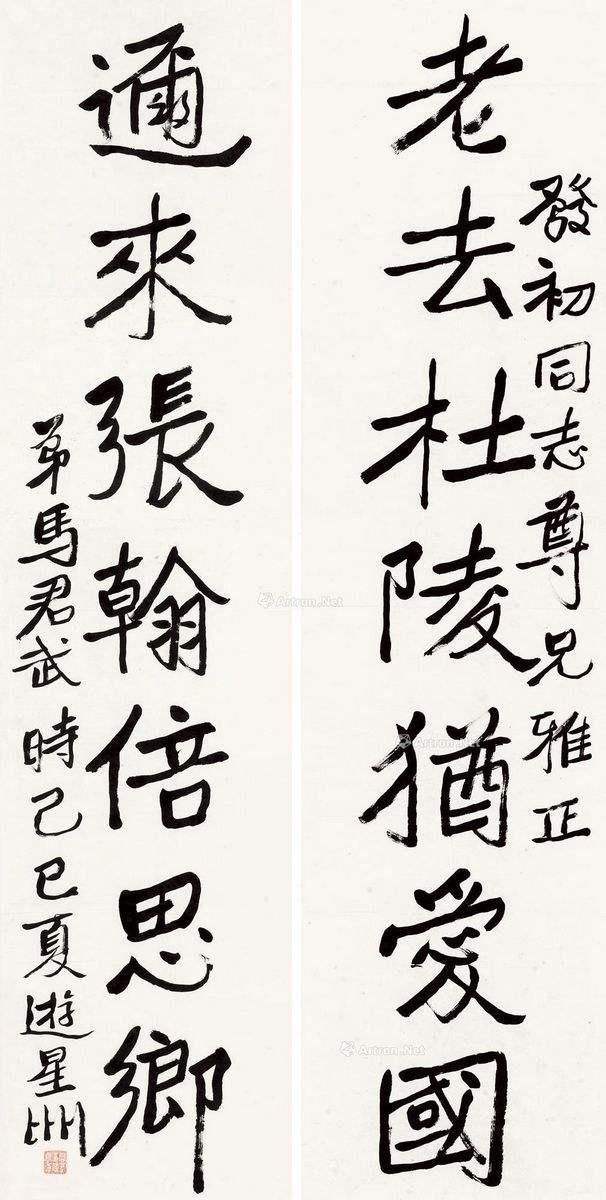 發初同志尊兄雅正
老去杜陵猶愛國
邇來張翰倍思鄉
弟馬君武時己巳夏遊星洲
Artron.Net
Artron.Net
Artron.Net